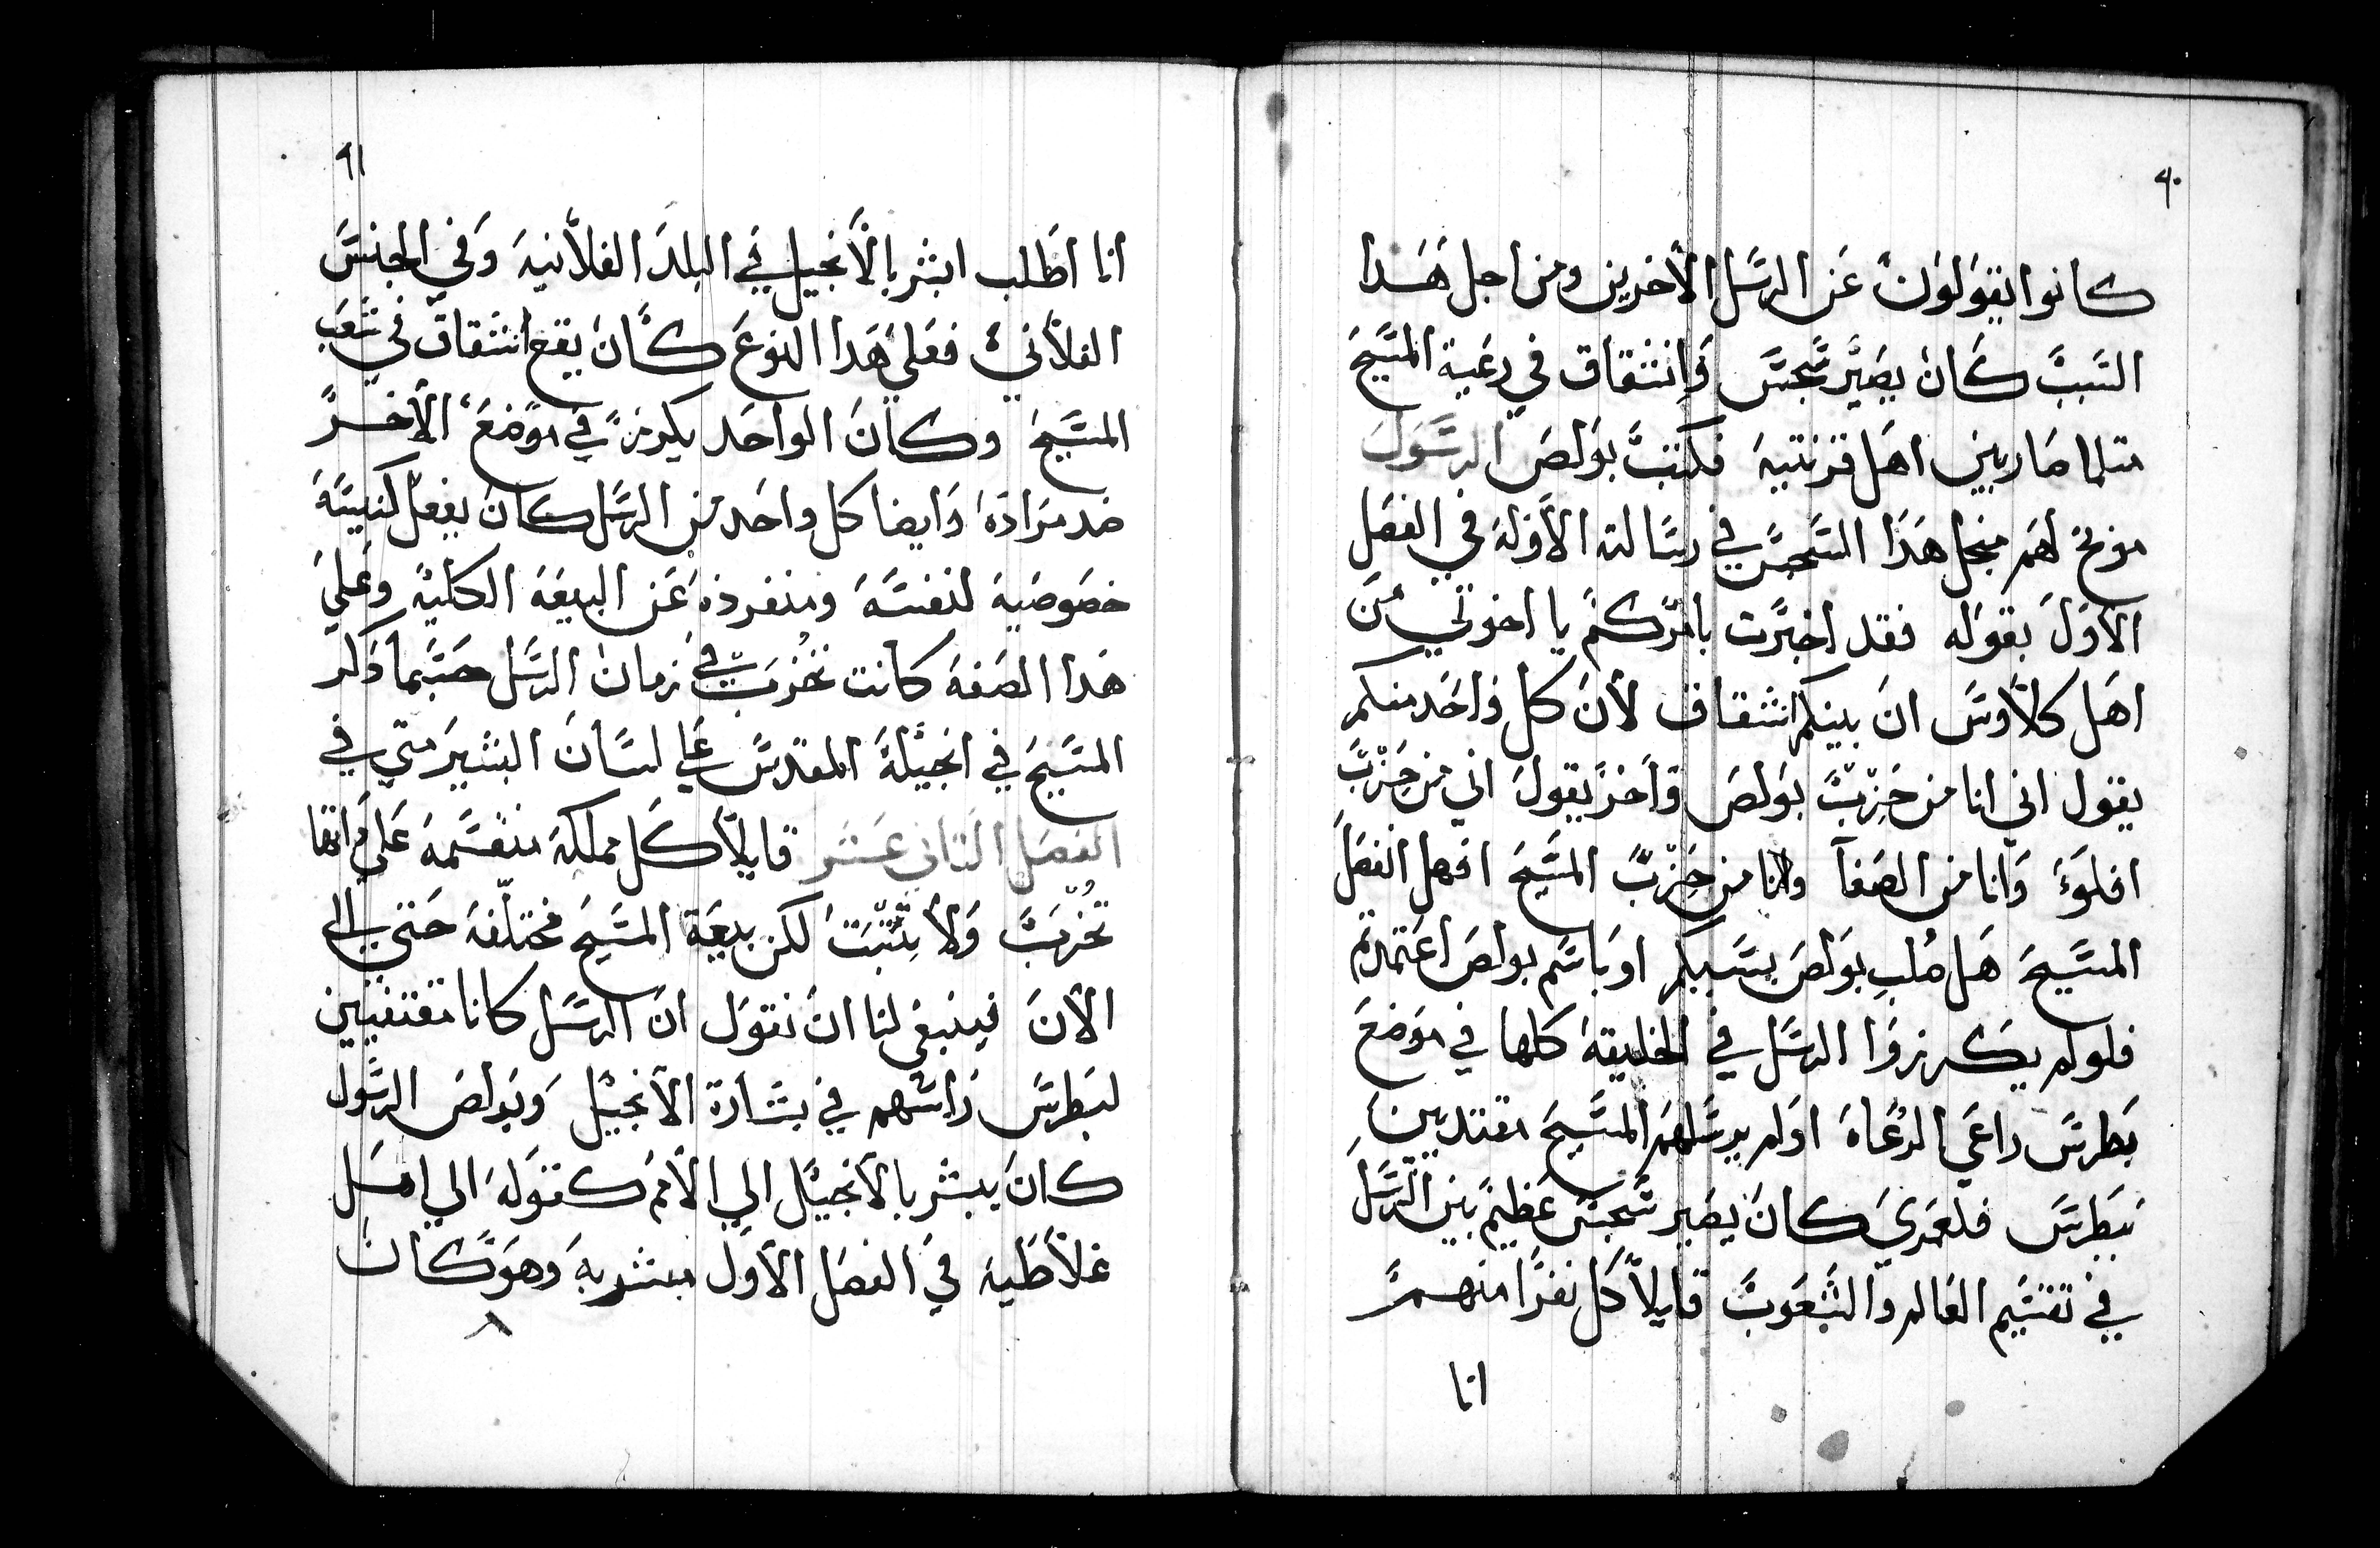 ٩٠
كانوا يقولون عن الرسل الاخرين ومن اجل هدا
السبب كان يصير سجس وانشقاق في رعية المسيح
متلما صار بين اهل قرنتيه فكتب بولص الرسول
موبخ لهم منجل هدا السجس في رسالته الاوله في الفصل
الاول بقوله فقد اخبرت بامركم يا اخوتي من
اهل كلاوس ان بينكم انشقاق لان كل واحد منكم
يقول اني انا من حزب بولص واخر يقول اني من حزب
افلوء وانا من الصفا وانا من حزب المسيح افهل انفصل
المسيح هل صلب بولص بسببكم او باسم بولص اعتمدتم
فلو لم يكرزوا الرسل في الخليقة كلها في موضع
بطرس راعي الرعاه او لم يرسلهم المسيح مقتديين
ببطرس فلعمري كان يصير سجس عظيم بين الرسل
في تقسيم العالم والشعوب قايلا كل نفرا منهم
انا
٩١
انا اطلب ابشر بالانجيل في البلد الفلانيه وفي الجنس
الفلاني فعلي هدا النوع كان يقع انشقاق في شعب
المسيح وكان الواحد يكرز في موضع الاخر
ضد مراده وايضا كل واحد من الرسل كان يفعل كنيسة
خصوصية لنفسه ومنفرده عن البيعه الكلية وعلي
هدا الصفه كانت تخرب في زمان الرسل حسبما دكر
المسيح في انجيلة المقدس علي لسان البشير متي في
الفصل التاني عشر قايلا كل مملكة منقسمه علي داتها
تخرب ولا تتبت لكن بيعة المسيح مختلفه حتي الي
الان فينبغي لنا ان نقول ان الرسل كانا مقتفيين
لبطرس راسهم في بشارة الانجيل وبولص الرسول
كان يبشر بالانجيل الي الامم كقوله الي اهل
غلاطيه في الفصل الاول مبشر به وهو كان